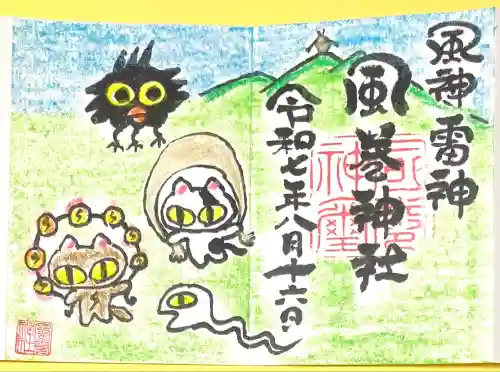 風神雷神
風巻神社
令和七年八月十六日